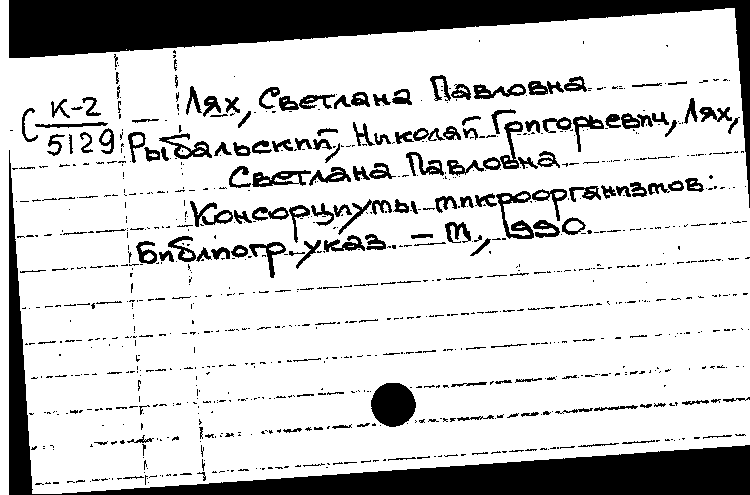 С К-2/5129
— Лях, Светлана Павловна
Рыбальский, Николай Григорьевич, Лях,
Светлана Павловна
Консорциумы микроорганизмов:
Библиогр. указ. – М., 1990.